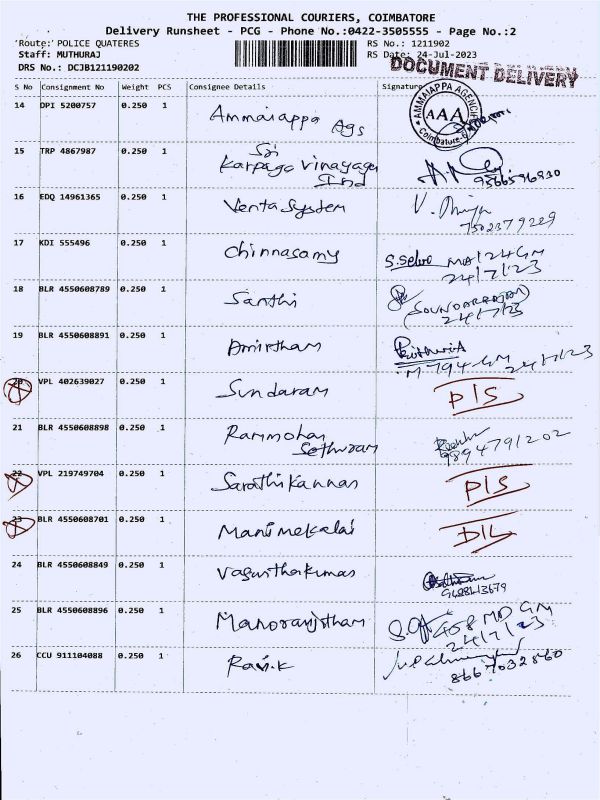 THE PROFESSIONAL COURIERS, COIMBATORE
Delivery Runsheet - PCG - Phone No.:0422-3505555 - Page No.:2
Route: POLICE QUATERES RS No.: 1211902
Staff: MUTHURAJ RS Date: 24-Jul-2023
DRS No.: DCJB121190202
DOCUMENT DELIVERY
S No Consignment No Weight PCS Consignee Details Signature
AMMAIAPPA AGENCIES
AAA
Coimbatore
14 DPI 5200757 0.250 1 Ammaiappa Ags
15 TRP 4867987 0.250 1 Sri
Karpaga Vinayaga
Ind 9566596930
16 EDQ 14961365 0.250 1 Venta System V.
7502379229
17 KDI 555496 0.250 1 Chinnasamy S.Selva
24/7/23
18 BLR 4550608789 0.250 1 Santhi (SOUNDARRAJAN)
24/7/23
19 BLR 4550608891 0.250 1 Amirtham
M 794 GM 24/7/23
20 VPL 402639027 0.250 1 Sundaram P/S
21 BLR 4550608898 0.250 1 Rammohan
Sethuram 9894791202
22 VPL 219749704 0.250 1 Sarathi Kannan P/S
23 BLR 4550608701 0.250 1 Manimekalai D/L
24 BLR 4550608849 0.250 1 Vasanthakumar
9488413679
25 BLR 4550608896 0.250 1 Manoranjitham 458 MD GM
24/7/23
26 CCU 911104088 0.250 1 Ravi.K
8667032860